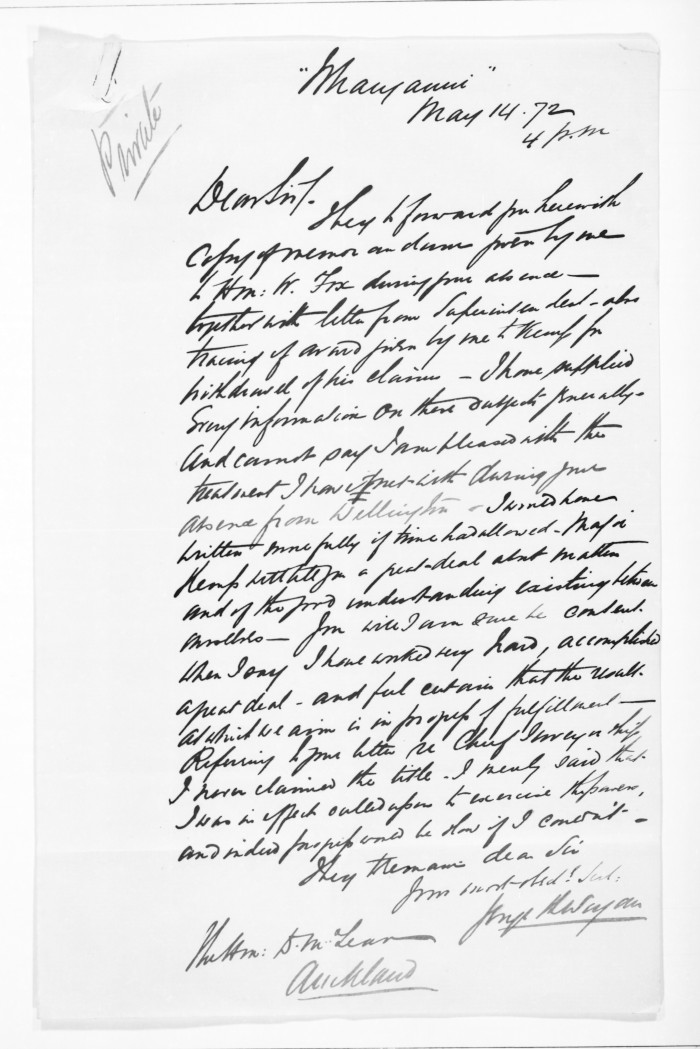 Private
"Wanganui"
May 14. 72
4 p.m
Dear Sir/-
I beg to forward you herewith
Copy of memorandum given by me
to Hon: W. Fox during your absence —
together with letter from Superintendent - also
tracing of award given by me to Kemp for
withdrawal of his claims — I have supplied
Every information on these subjects generally -
And cannot say I am pleased with the
treatment I have met with during your
absence from Wellington - I would have
written more fully if time had allowed - Major
Kemp will tell you a great deal about matters
and of the good understanding existing between
ourselves — You will I am sure be content
when I say I have worked very hard, accomplished
a great deal - and feel certain that the result
at which we aim is in progress of fulfillment —
Referring to your letter re Chief Surveyor ship
I never claimed the title - I merely said that
I was in effect called upon to exercise the powers,
and indeed progress would be slow if I couldn't -
I beg to remain dear Sir
Yours most obedt Servt:
The Hon: D. McLean
Auckland